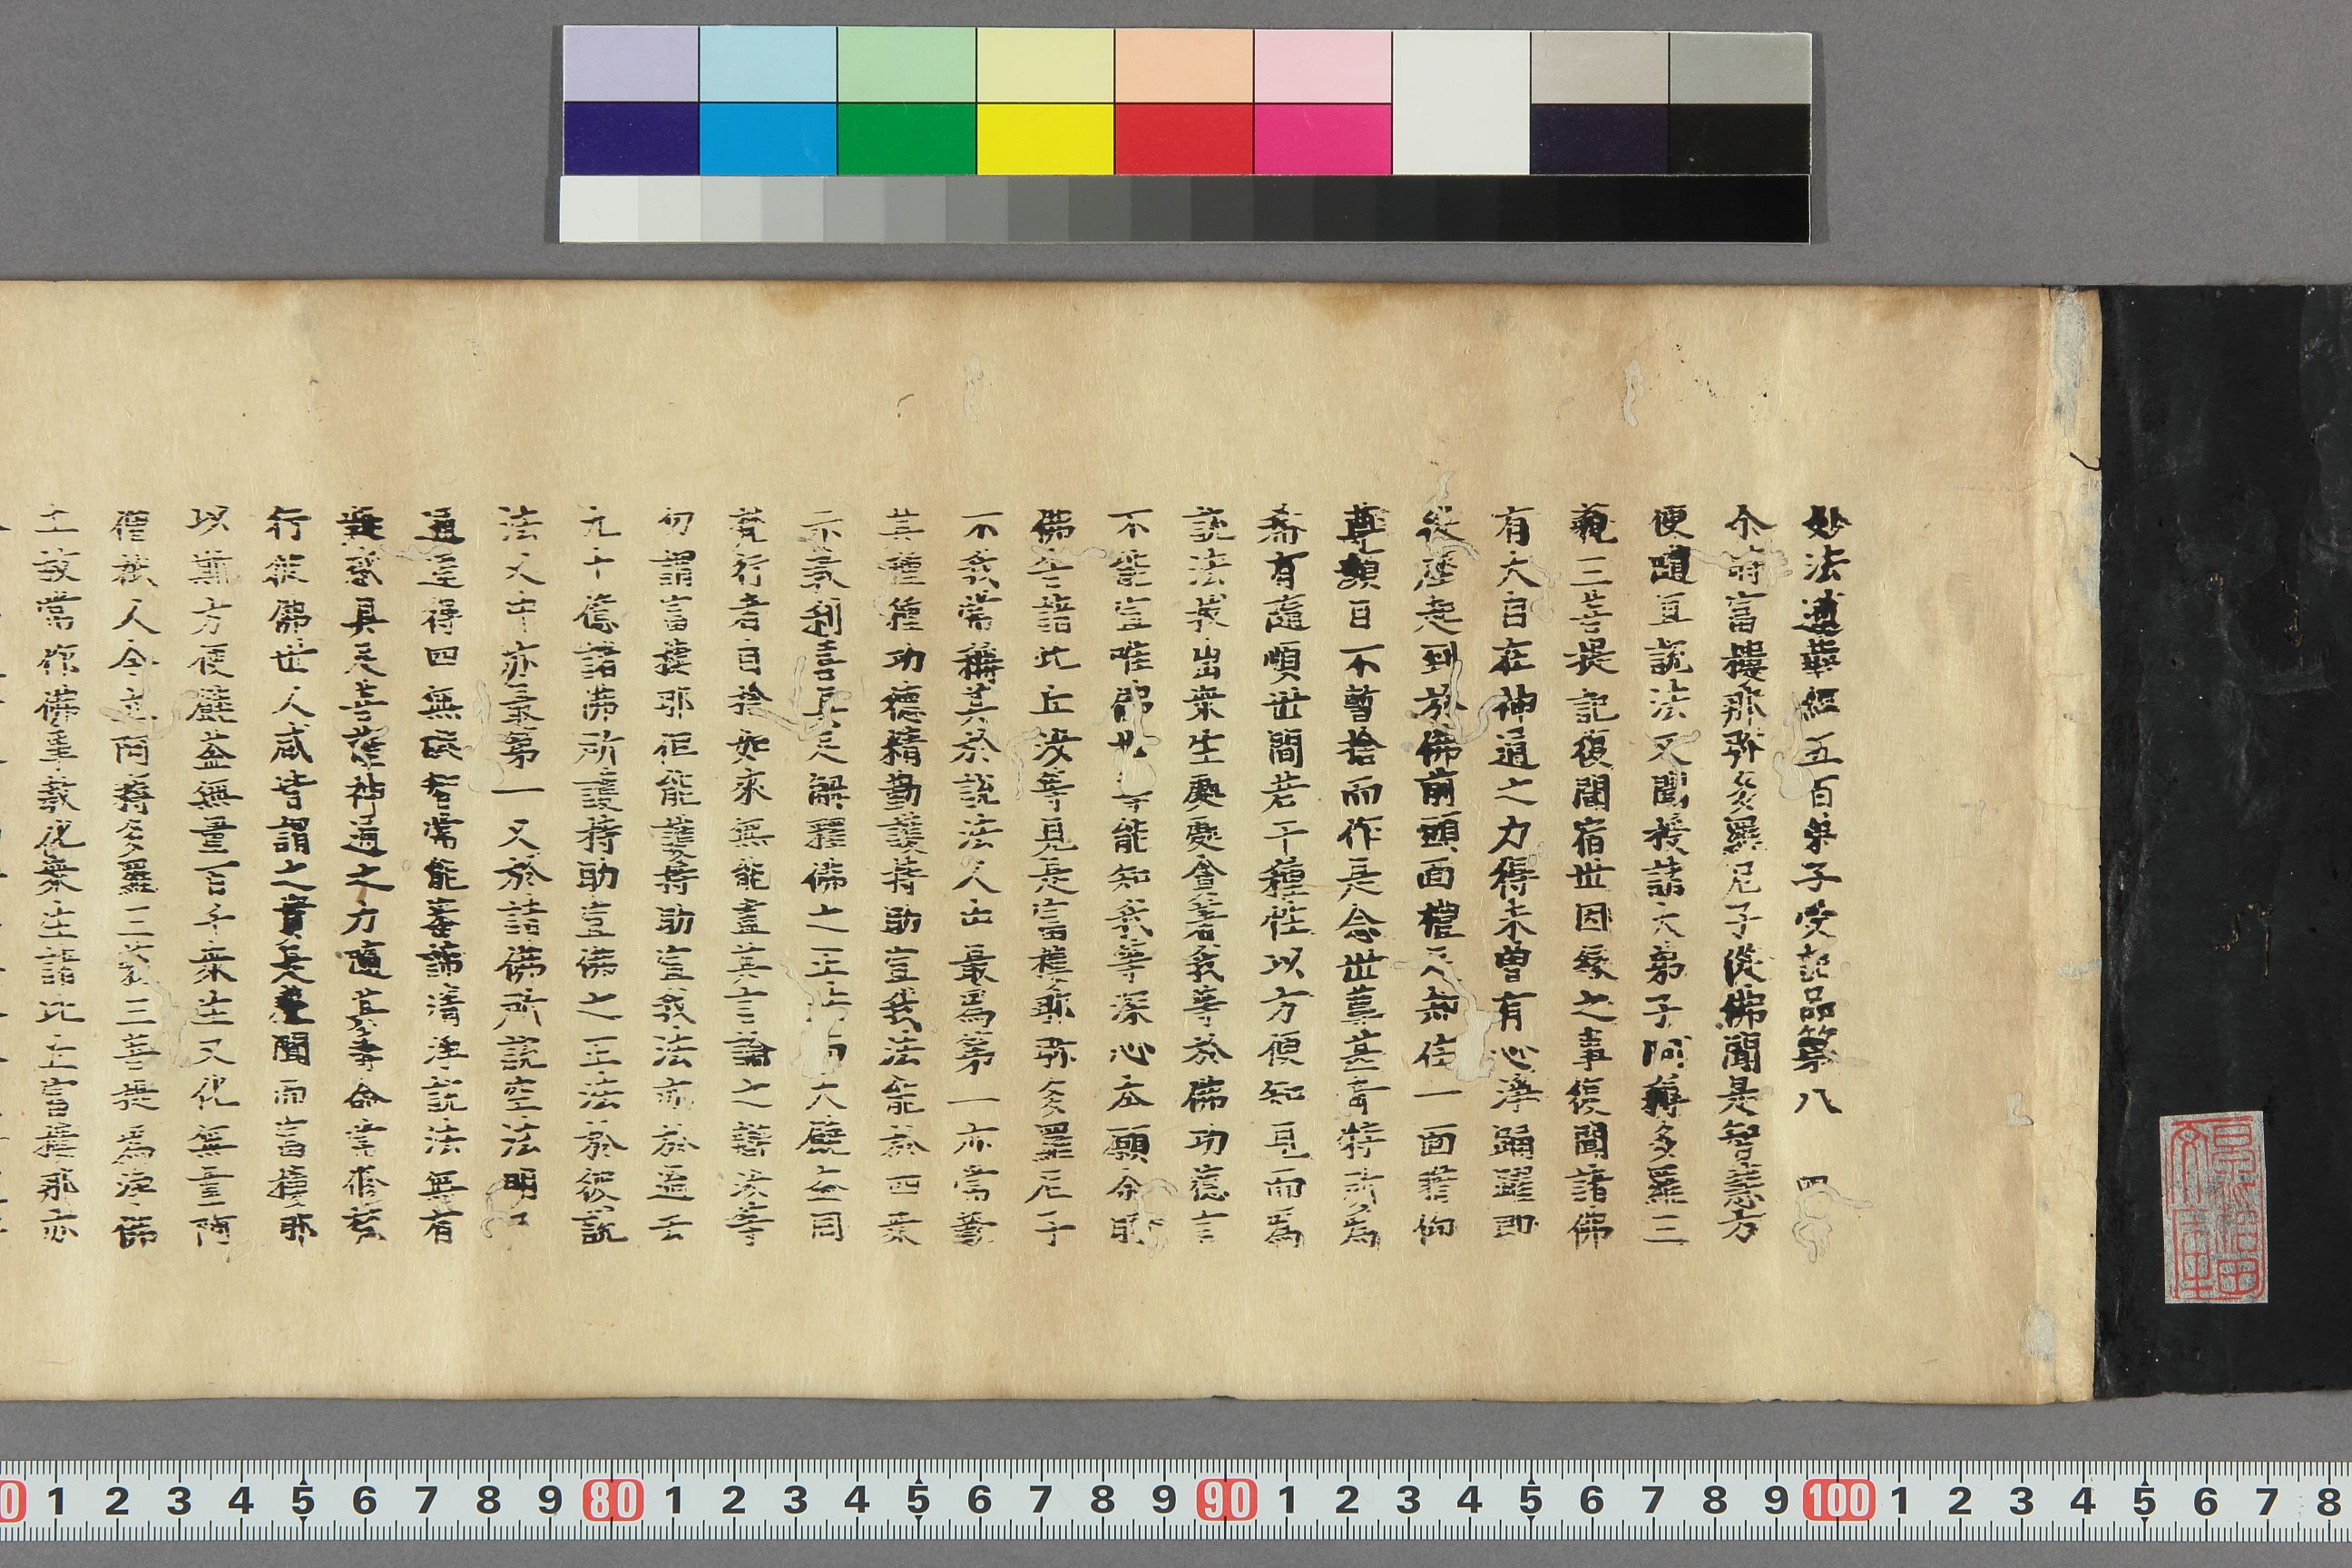 妙法蓮華經五百弟子受記品第八 四
尒時富樓那弥多羅尼子從佛聞是智慧方
便隨宜說法又聞授諸大弟子阿耨多羅三
藐三菩提記復聞宿世因緣之事復聞諸佛
有大自在神通之力得未曾有心淨踊躍即
從座起到於佛前頭面禮足却住一面瞻仰
尊顏目不暫捨而作是念世尊甚奇特所為
希有隨順世間若干種性以方便知見而為
說法拔出衆生處處貪著我等於佛功德言
不能宣唯佛世尊能知我等深心本願尒時
佛告諸比丘汝等見是富樓那弥多羅尼子
不我常稱其於說法人中最為第一亦常歎
其種種功德精勤護持助宣我法能於四衆
示教利喜具足解釋佛之正法而大饒益同
梵行者自捨如來無能盡其言論之辯汝等
勿謂富樓那但能護持助宣我法亦於過去
九十億諸佛所護持助宣佛之正法於彼說
法人中亦最第一又於諸佛所說空法明了
通達得四無礙智常能審諦清淨說法無有
疑惑具足菩薩神通之力隨其壽命常修梵
行彼佛世人咸皆謂之實是聲聞而富樓那
以斯方便饒益無量百千衆生又化無量阿
僧祇人令立阿耨多羅三藐三菩提為淨佛
土故常作佛事教化衆生諸比丘富樓那亦
0 1 2 3 4 5 6 7 8 9 80 1 2 3 4 5 6 7 8 9 90 1 2 3 4 5 6 7 8 9 100 1 2 3 4 5 6 7 8